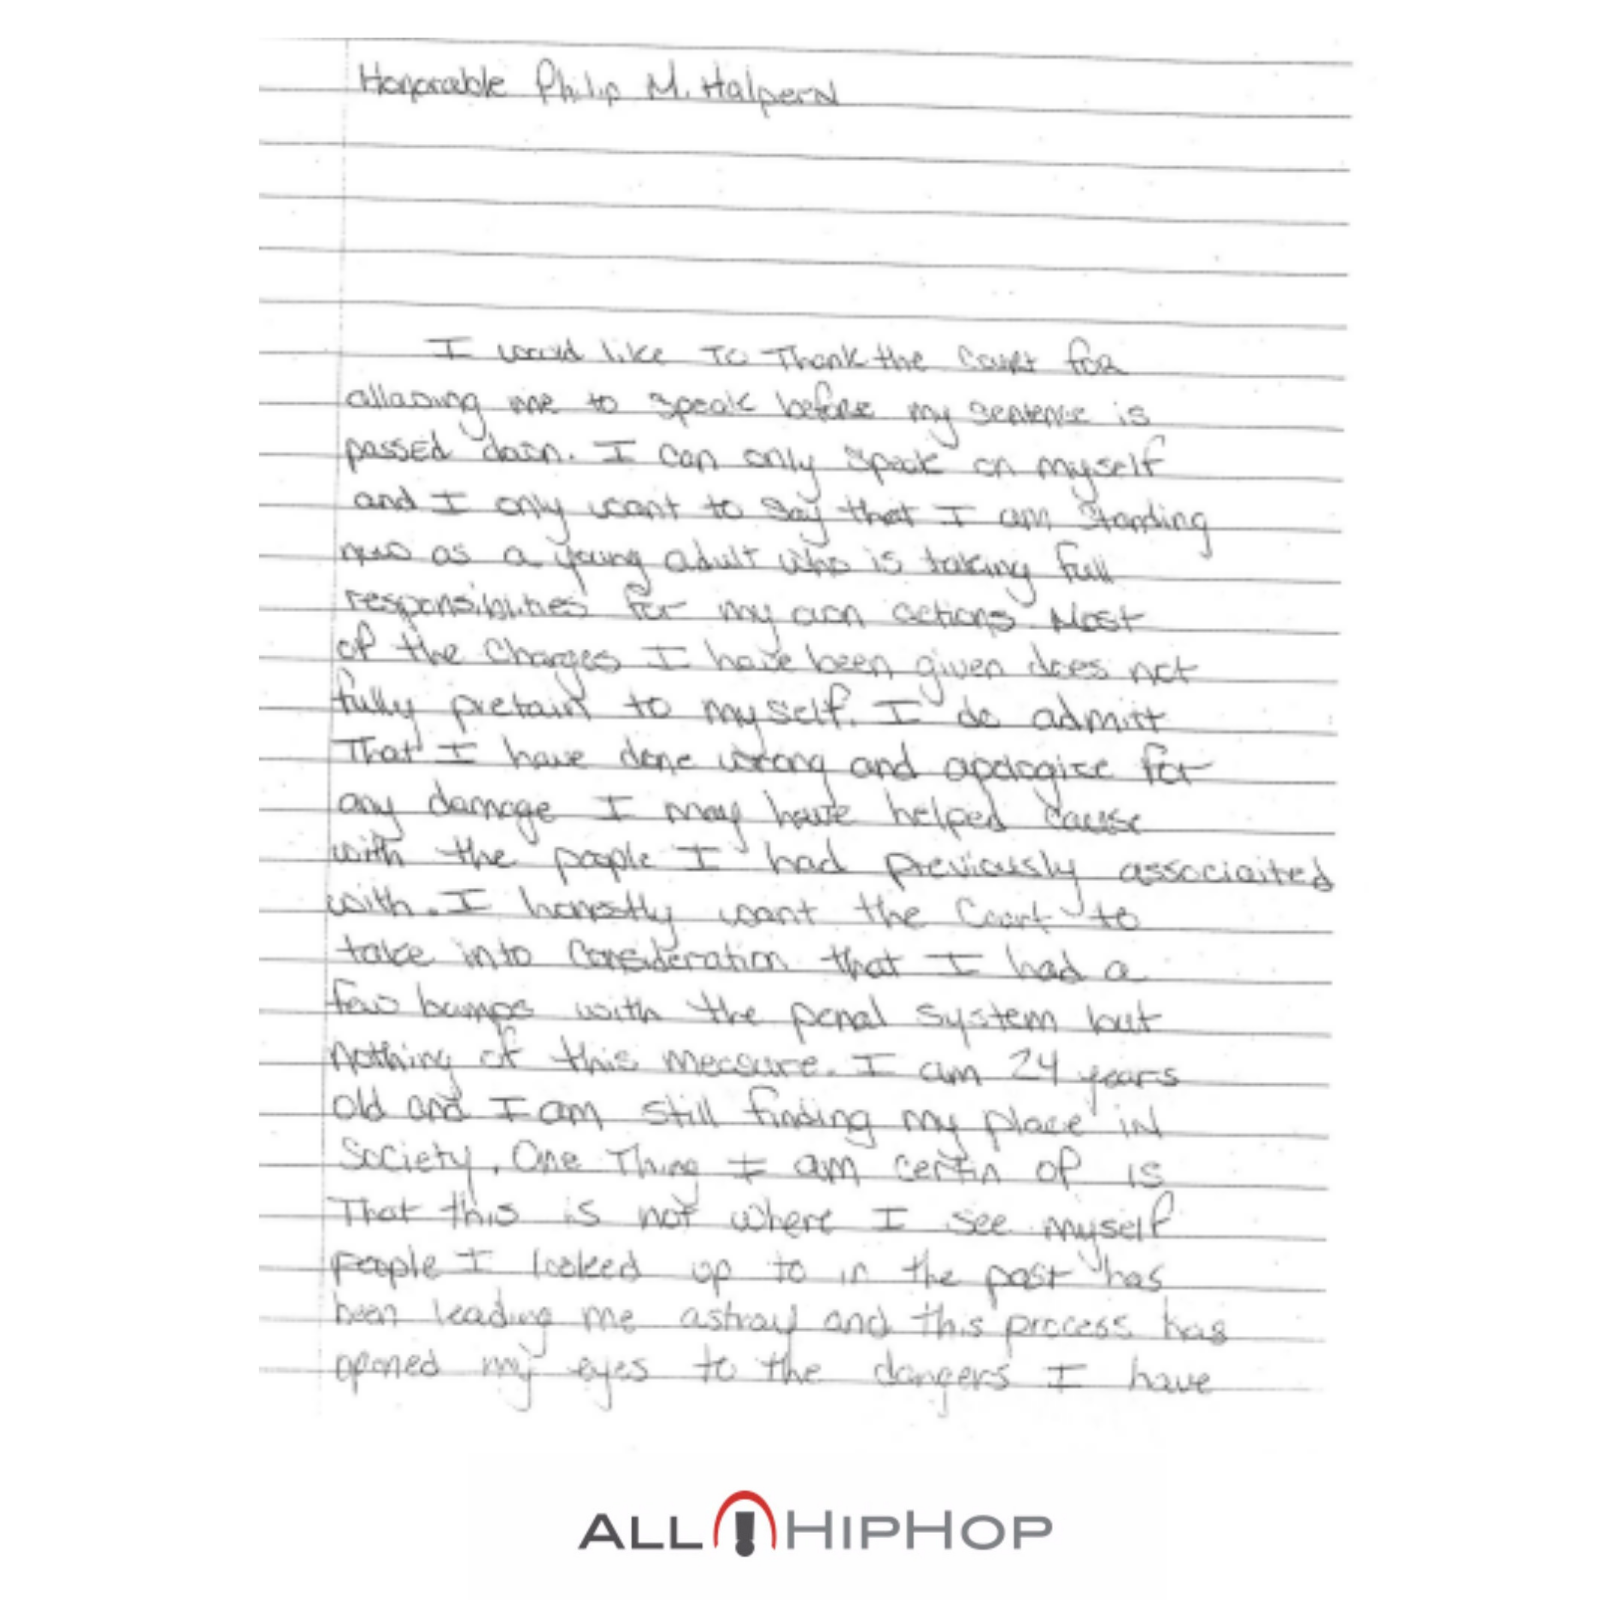 Honorable Philip M. Halpern
I would like To Thank the Court for
allowing me to speak before my sentence is
passed down. I can only speak on myself
and I only want to say that I am standing
now as a young adult who is taking full
responsibilities for my own actions. Most
of the Charges I have been given does not
fully pretain to myself. I do admitt
That I have done wrong and apologize for
any damage I may have helped cause
with the people I had previously associaited
with. I honestly want the Court to
take into Consideration that I had a
few bumps with the penal system but
nothing of this measure. I am 24 years
old and I am still finding my place in
Society. One Thing I am certin of is
That this is not where I see myself
people I looked up to in the past has
been leading me astray and this process has
opened my eyes to the dangers I have
ALL HIPHOP